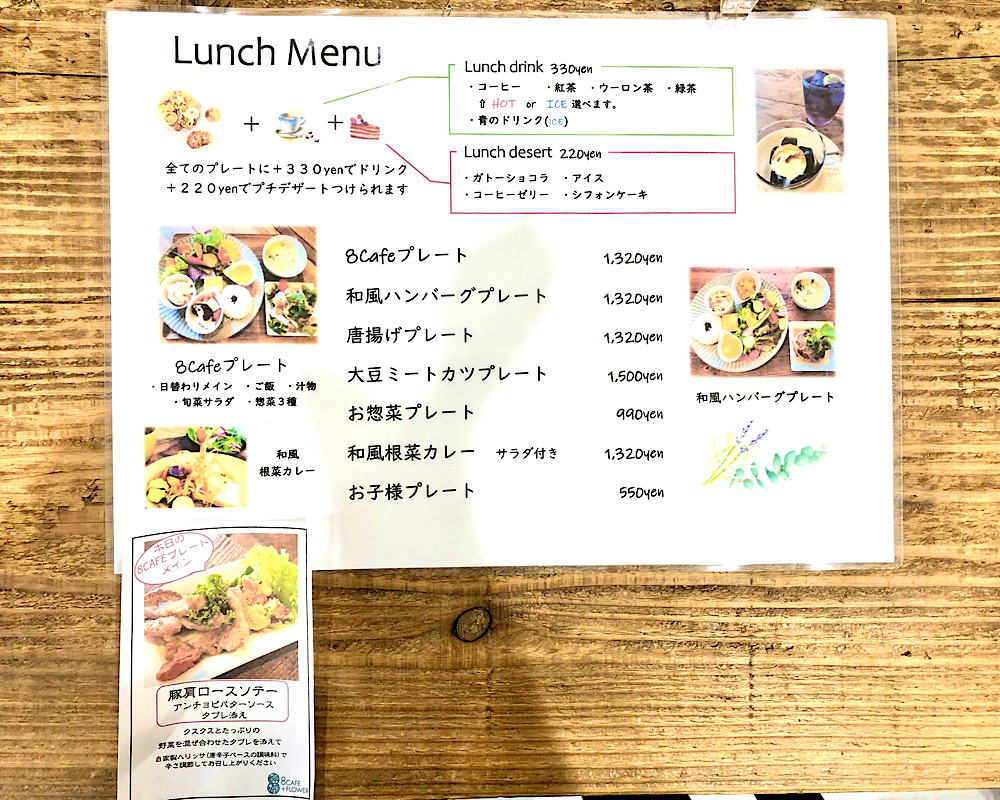 Lunch Menu
+ + 
全てのプレートに+330yenでドリンク
+220yenでプチデザートつけられます
Lunch drink 330yen
・コーヒー ・紅茶 ・ウーロン茶 ・緑茶
⇧ HOT or ICE 選べます。
・青のドリンク(ICE)
Lunch desert 220yen
・ガトーショコラ ・アイス
・コーヒーゼリー ・シフォンケーキ
8Cafeプレート 1,320yen
和風ハンバーグプレート 1,320yen
唐揚げプレート 1,320yen
大豆ミートカツプレート 1,500yen
お惣菜プレート 990yen
和風根菜カレー サラダ付き 1,320yen
お子様プレート 550yen
8Cafeプレート
・日替わりメイン ・ご飯 ・汁物
・旬菜サラダ ・惣菜3種
和風
根菜カレー
和風ハンバーグプレート
本日の
8CAFEプレート
メイン
豚肩ロースソテー
アンチョビバターソース
タブレ添え
クスクスとたっぷりの
野菜を混ぜ合わせたタブレを添えて
自家製ハリッサ(唐辛子ベースの調味料)で
辛さ調節してお召し上がりください
8CAFE
+FLOWER